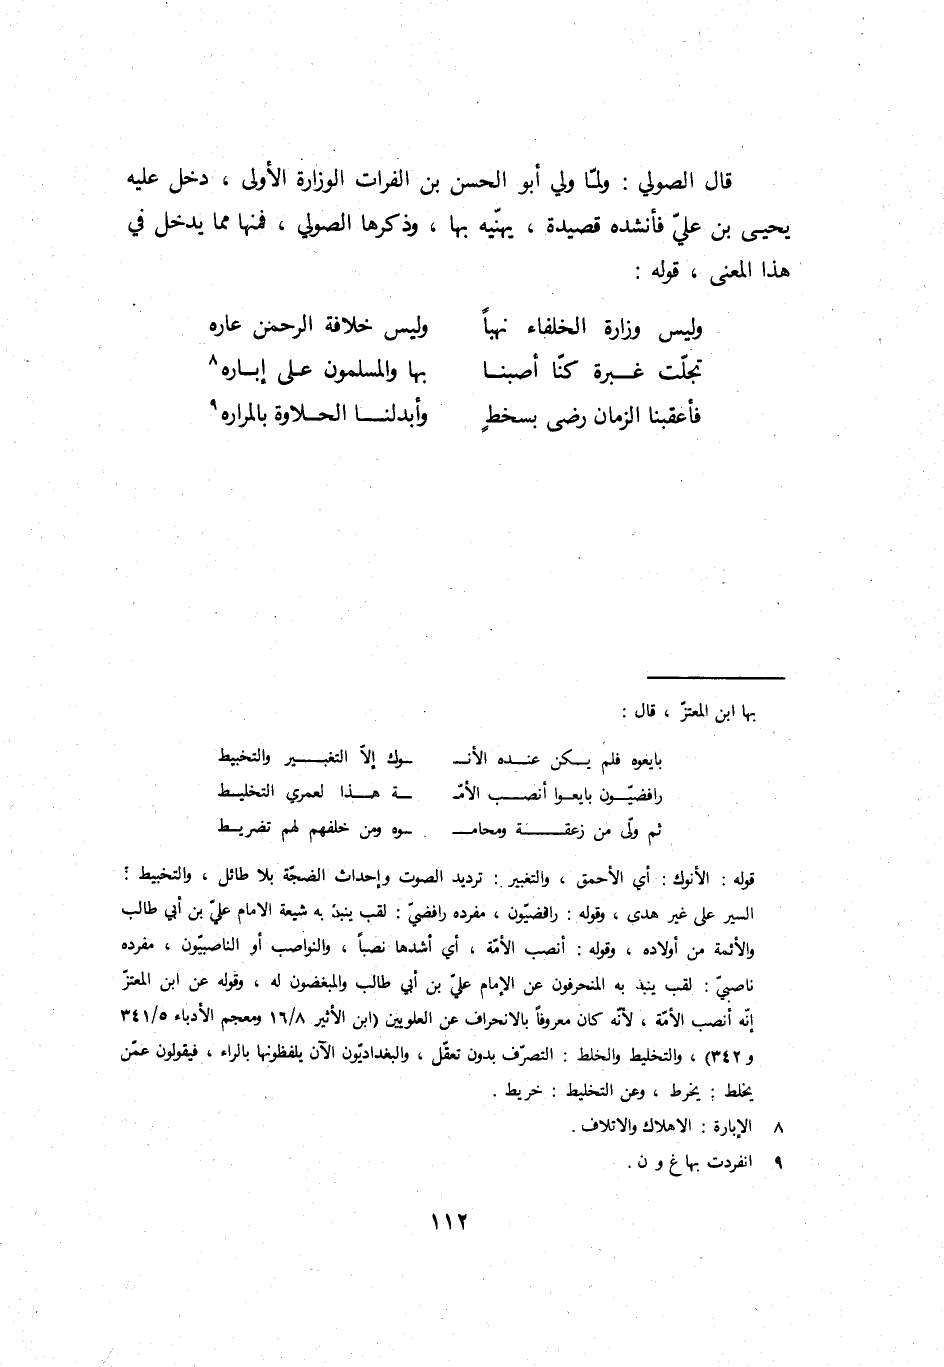 قال الصولي : ولمّا ولي أبو الحسن بن الفرات الوزارة الأولى ، دخل عليه
يحيـى بن عليّ فأنشده قصيدة ، يهنّيه بها ، وذكرها الصولي ، فمنها مما يدخل في
هذا المعنى ، قوله :
وليس وزارة الخلفاء نهباً وليس خلافة الرحمن عاره
تجلّت غبرة كنّا أصبنا بها والمسلمون على إباره٨
فأعقبنا الزمان رضى بسخطٍ وأبدلنا الحلاوة بالمراره٩
بها ابن المعتزّ ، قال :
بايعوه فلم يكن عنده الأنـ ـوك إلاّ التغبير والتخبيط
رافضيّون بايعوا أنصب الأمّـ ـة هذا لعمري التخليط
ثم ولّى من زعقة ومحامـ ـوه ومن خلفهم لهم تضريط
قوله : الأنوك : أي الأحمق ، والتغبير : ترديد الصوت وإحداث الضجّة بلا طائل ، والتخبيط :
السير على غير هدى ، وقوله : رافضيّون ، مفرده رافضيّ : لقب ينبذ به شيعة الامام عليّ بن أبي طالب
والأئمة من أولاده ، وقوله : أنصب الأمّة ، أي أشدها نصباً ، والنواصب أو الناصبيّون ، مفرده
ناصبيّ : لقب ينبذ به المنحرفون عن الإمام عليّ بن أبي طالب والمبغضون له ، وقوله عن ابن المعتزّ
إنّه أنصب الأمّة ، لأنّه كان معروفاً بالانحراف عن العلويين (ابن الأثير ١٦/٨ ومعجم الأدباء ٣٤١/٥
و ٣٤٢) ، والتخليط والخلط : التصرّف بدون تعقّل ، والبغداديّون الآن يلفظونها بالراء ، فيقولون عمّن
يخلط : يخرط ، وعن التخليط : خريط .
٨ الإبارة : الاهلاك والاتلاف .
٩ انفردت بها غ و ن .
١١٢